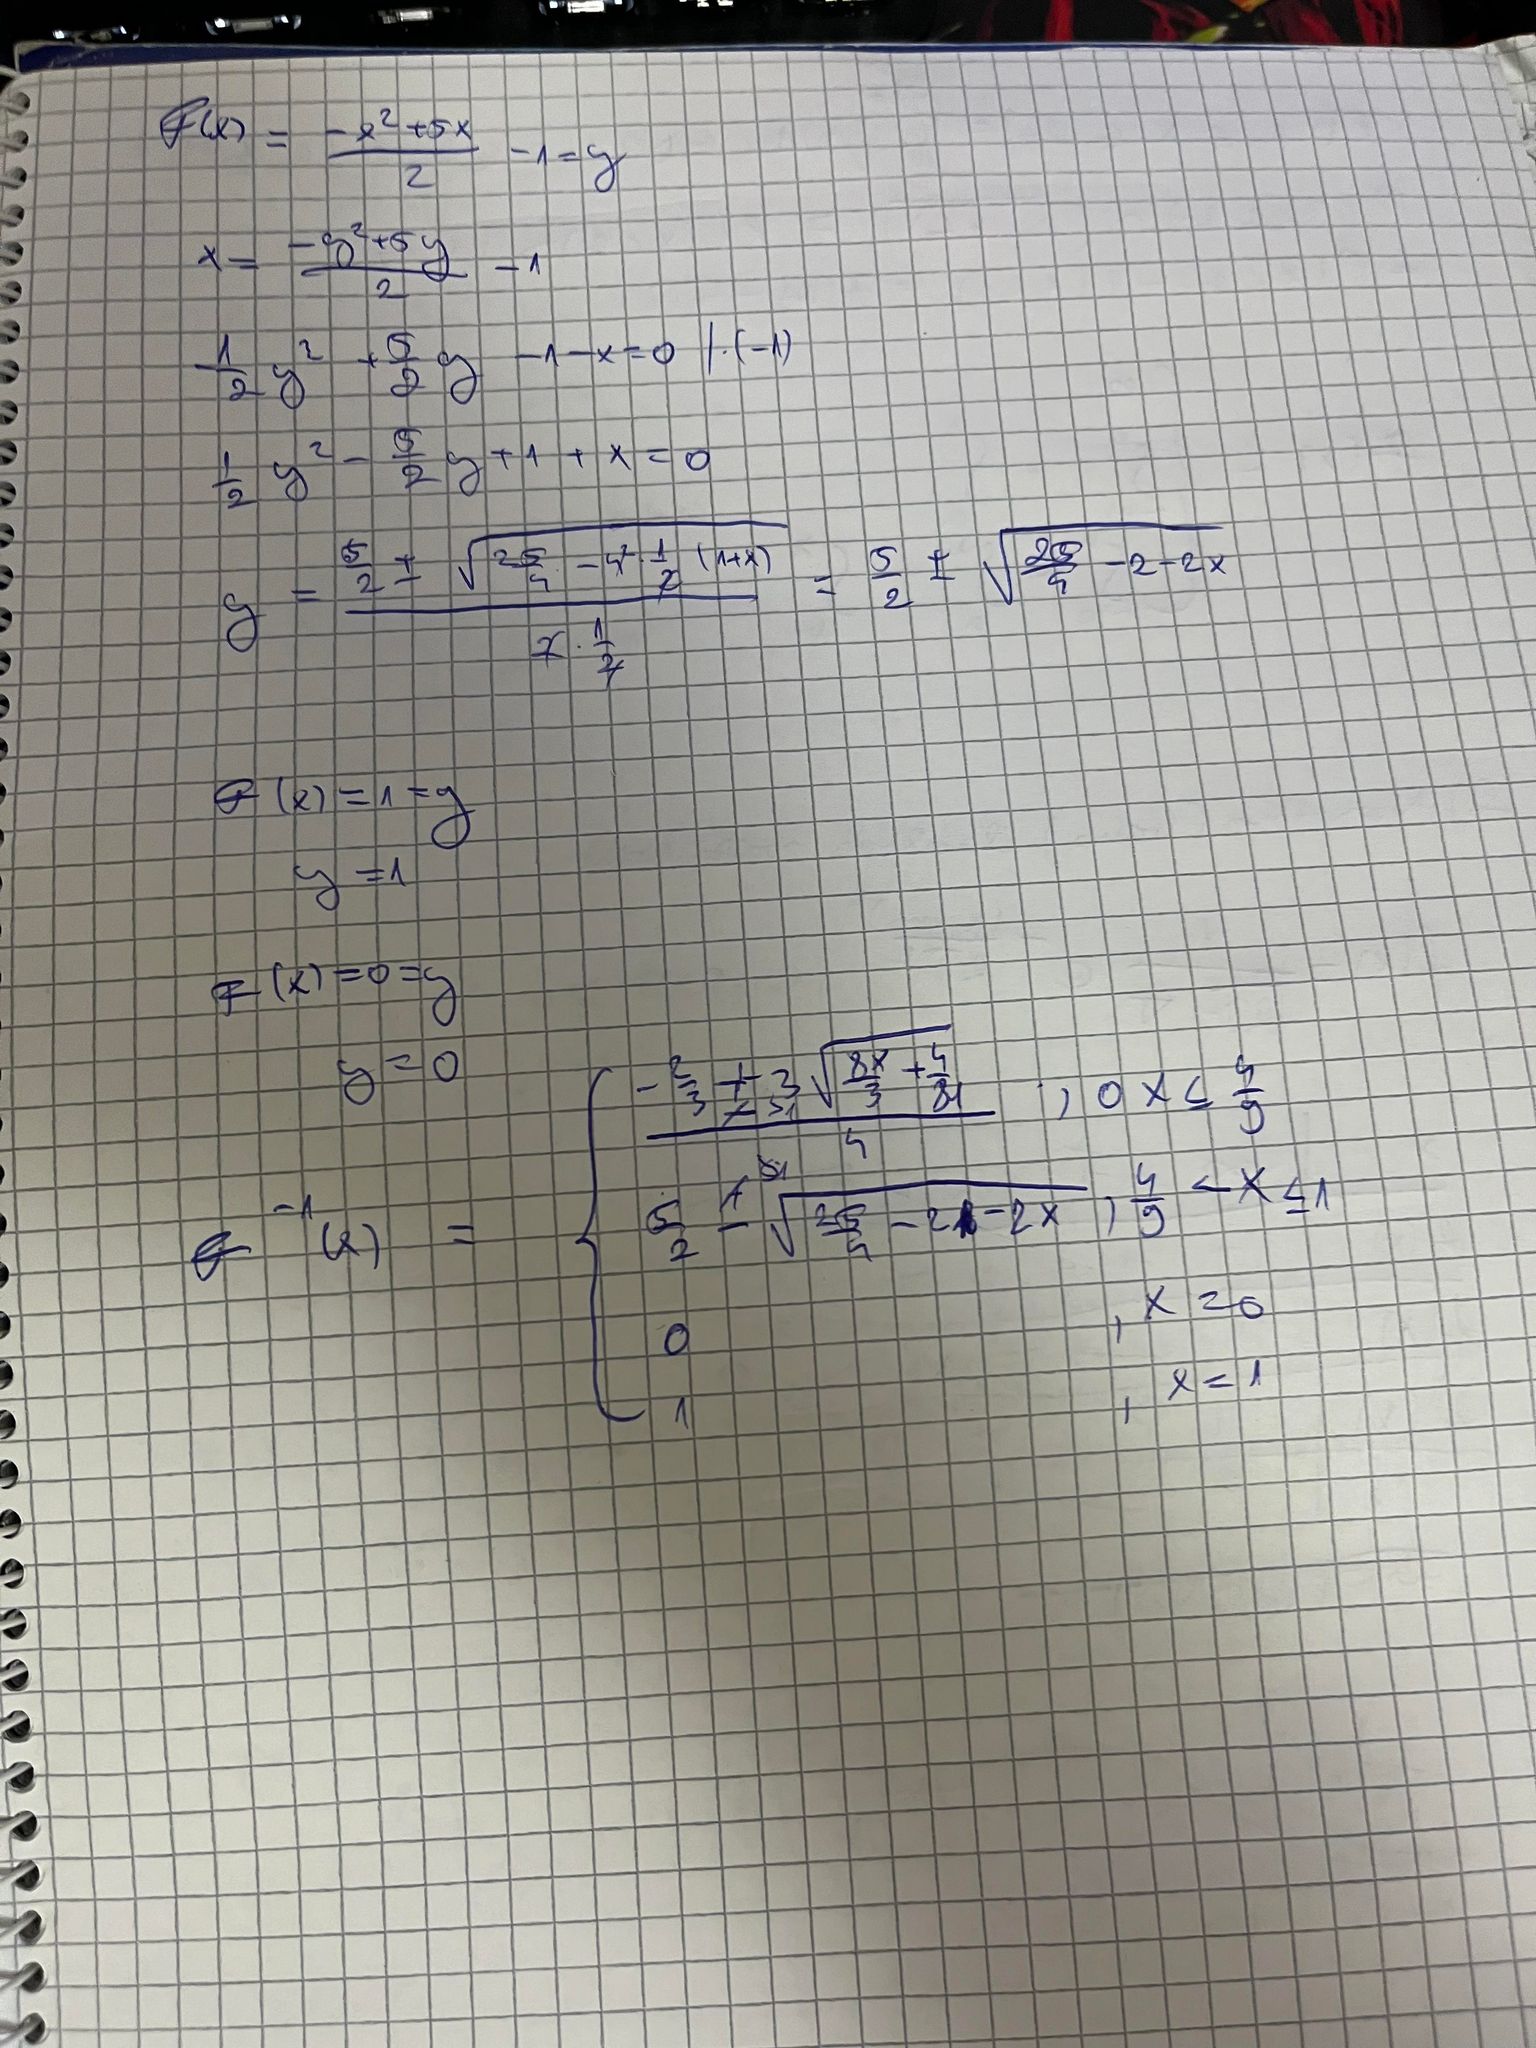 F(x) = (-x² + 5x)/2 - 1 = y
x = (-y² + 5y)/2 - 1
-1/2 y² + 5/2 y - 1 - x = 0 /·(-1)
1/2 y² - 5/2 y + 1 + x = 0
y = (5/2 ± √(25/4 - 4² · 1/2 (1+x)))/(2 · 1/2) = 5/2 ± √(25/4 - 2 - 2x)
F(x) = 1 = y
y = 1
F(x) = 0 = y
y = 0
√(8x/3 + 4/81) / 4 , 0 x ≤ 4/9
F⁻¹(x) = { 5/2 - √(25/4 - 2 - 2x) , 4/9 < x ≤ 1
0 , x = 0
1 , x = 1